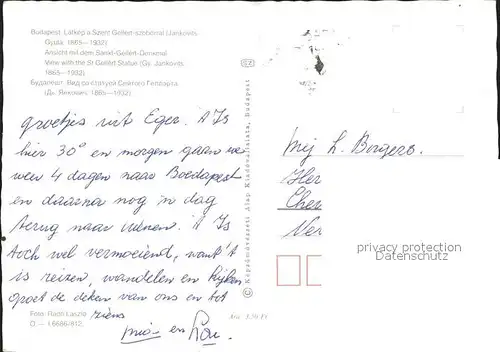 Budapest. Látkép a Szent Gellért-szoborral (Jankovits
Gyula, 1865—1932)
Ansicht mit dem Sankt-Gellért-Denkmal
View with the St Gellért Statue (Gy. Jankovits,
1865—1932)
Будапешт. Вид со статуей Святого Геллерта
(Дь. Янкович, 1865—1932)
groetjes uit Eger. 't Is
hier 30° en morgen gaan we
weer 4 dagen naar Boedapest
en daarna nog in dag
terug naar Wenen. 't Is
toch wel vermoeiend, want 't
is reizen, wandelen en kijken
groet de deken van ons en tot
ziens
en Lou.
Foto: Rédti László
© Képzőművészeti Alap Kiadóvállalata, Budapest
Mej L. Borgers.
Her
Ver
privacy protection
Datenschutz